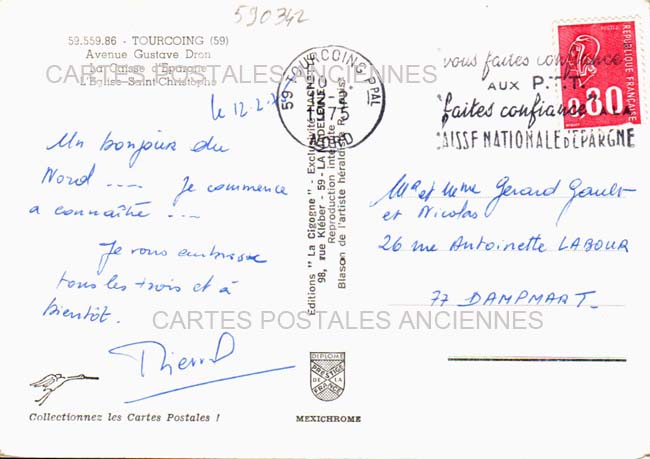 590342
59.559.86 - TOURCOING (59)
Avenue Gustave Dron
La Caisse d'Epargne
L'Eglise Saint-Christophe
CARTES POSTALES ANCIENNES
le 12.2.
Un bonjour du
Nord ---- Je commence
a connaître ---
Je vous embrasse
tous les trois et à
bientôt.
Collectionnez les Cartes Postales !
Editions "La Cigogne" - Exclusivité HACHETTE
98, rue Kléber - 59 - LA MADELEINE
Reproduction interdite
Blason de l'artiste héraldiste R. Louis
DIPLOME
PRESTIGE
DE LA
FRANCE
MEXICHROME
59 TOURCOING PPAL
NORD
vous faites confiance
AUX P.T.T.
faites confiance
CAISSE NATIONALE D'EPARGNE
REPUBLIQUE FRANÇAISE
POSTES
0.80
Mr et Mme Gérard Gault
et Nicolas
26 rue Antoinette LABOUR
77 DAMPMART.
CARTES POSTALES ANCIENNES